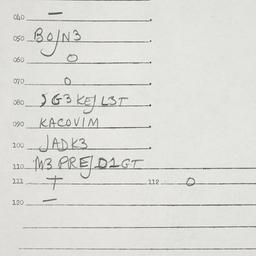 040 —
050 BOJN3
060 O
070 O
080 JG3KEJL3T
090 KACOVIM
100 JADK3
110 M3PREJD1GT
111 + 112 O
120 —